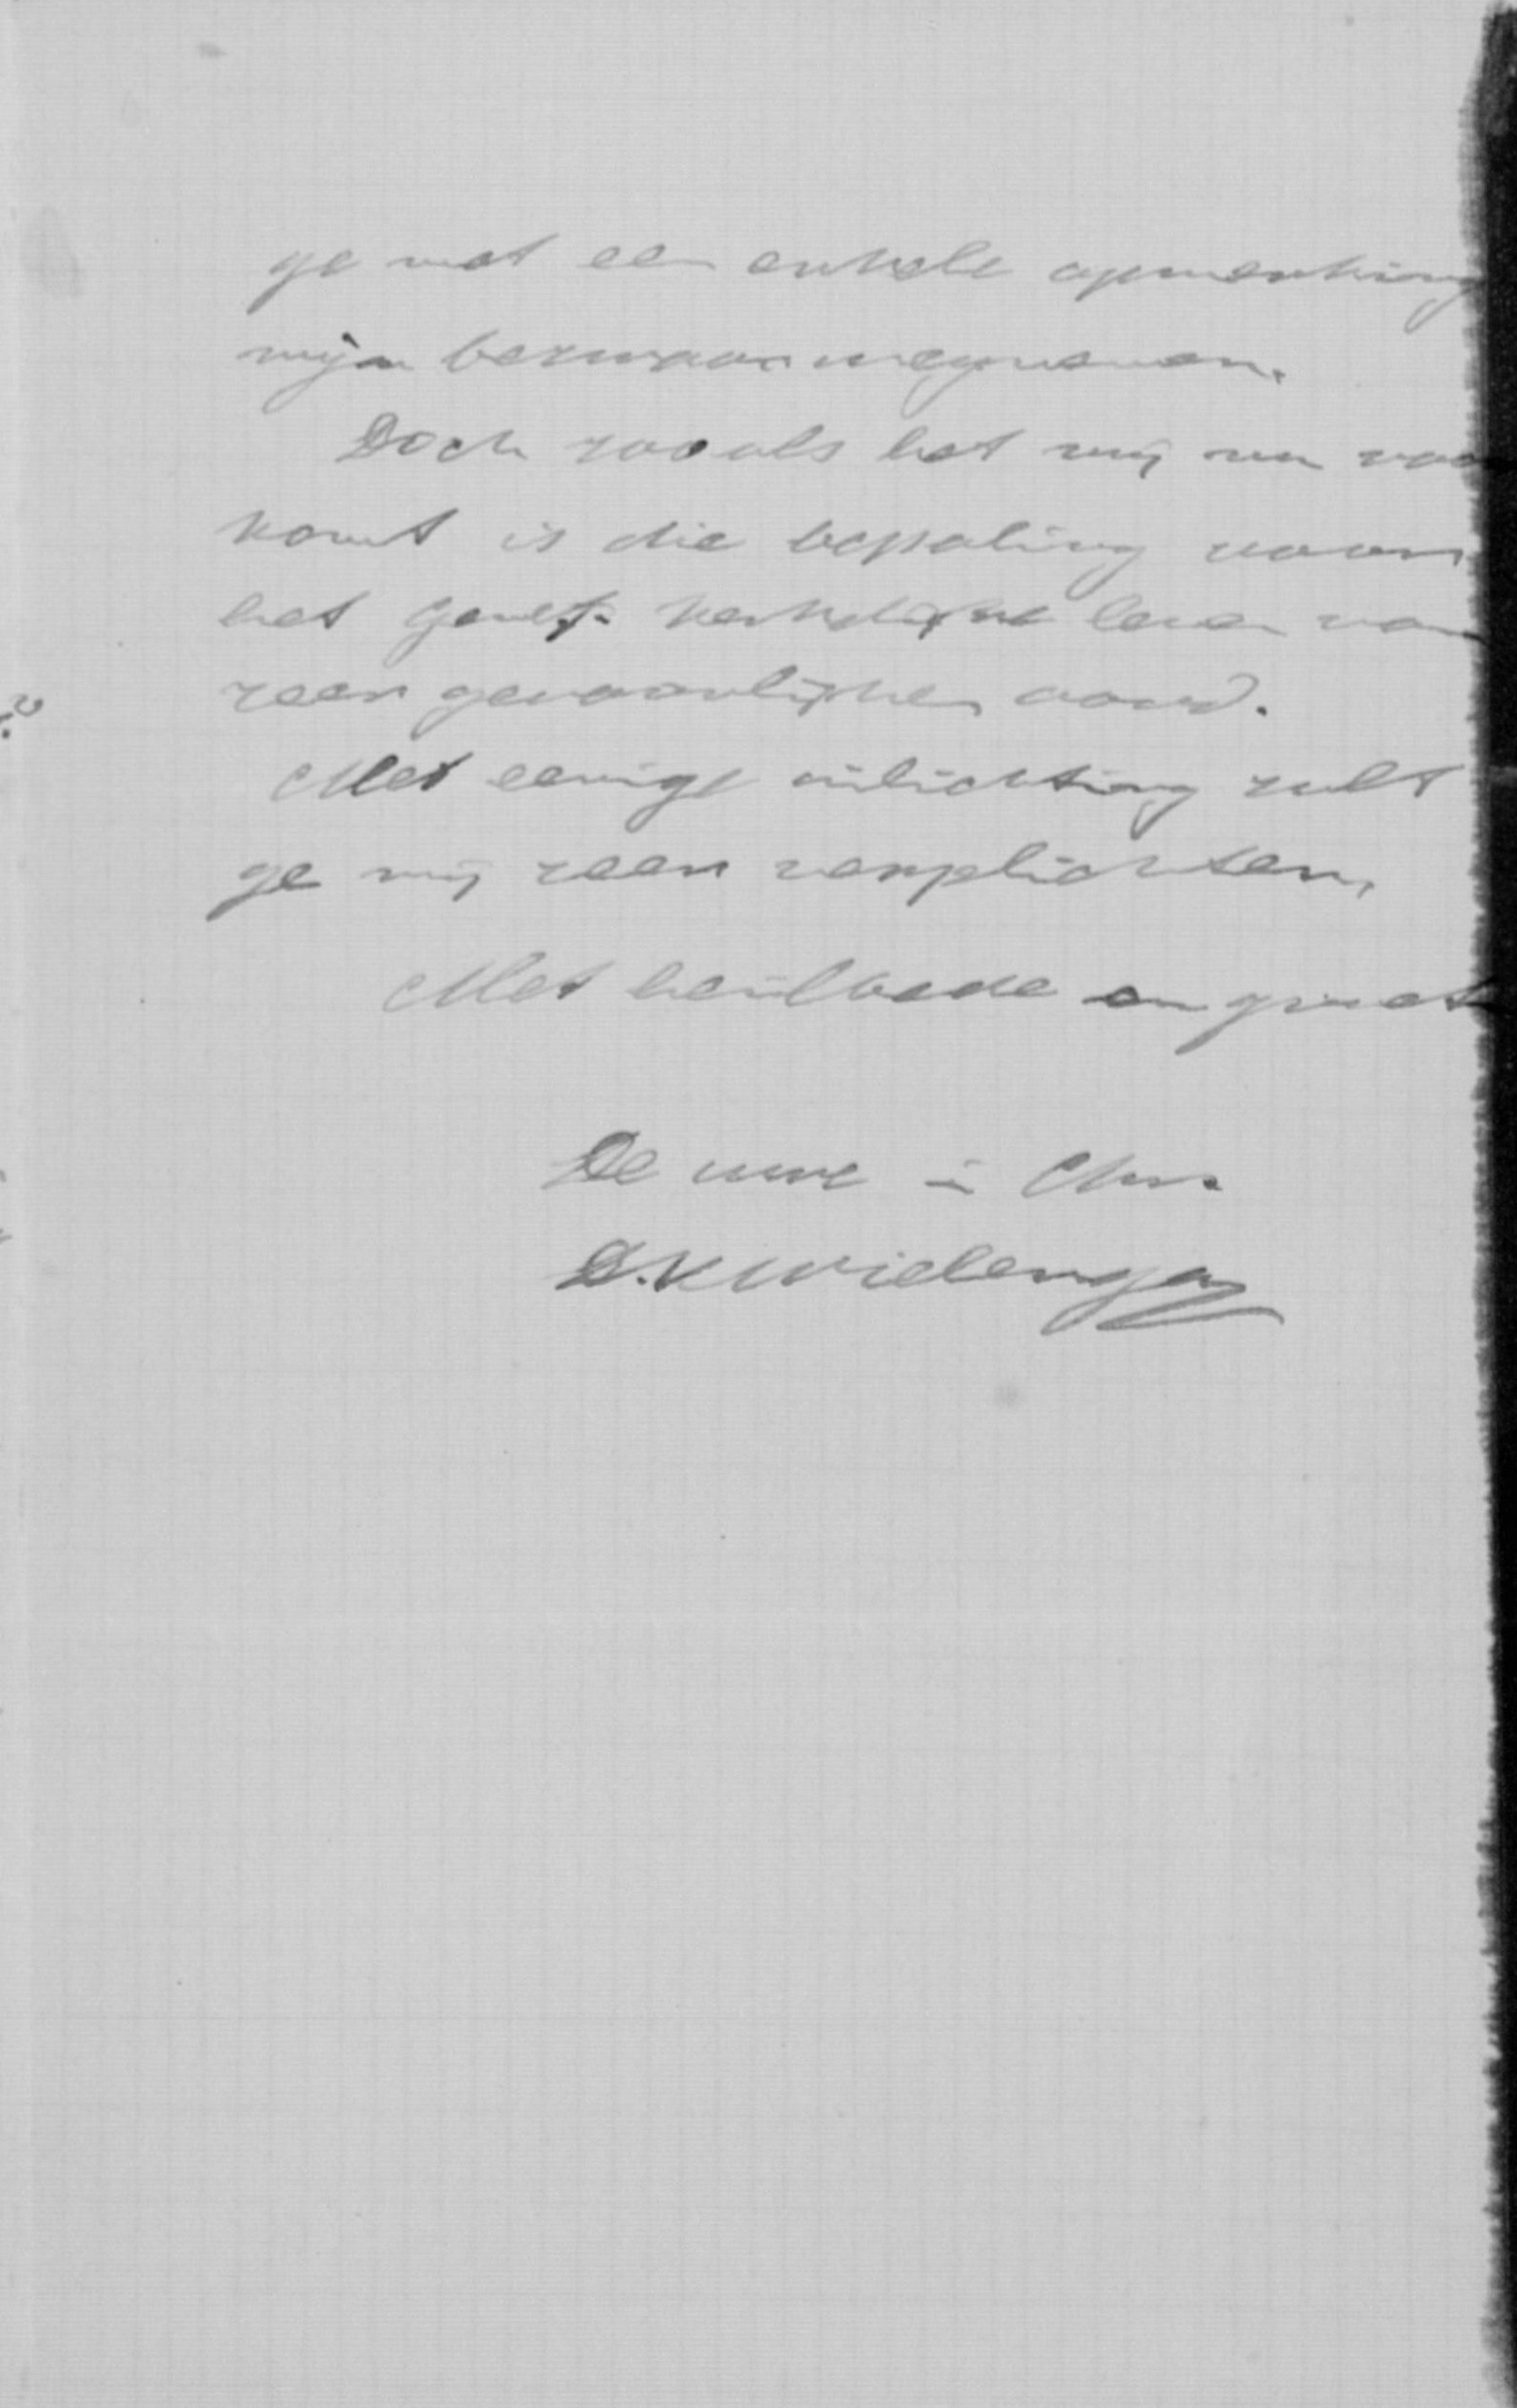 ge met een enkele opmerking
mijn bezwaar wegnemen.
Doch zooals het mij nu voor
komt is die bepaling voor
het Geref. kerkelijke leven van
zeer gevaarlijken aard.
Met eenige inlichting zult
ge mij zeer verplichten,
Met heilbede en groet
De uwe in Chr.
D.K Wielenga